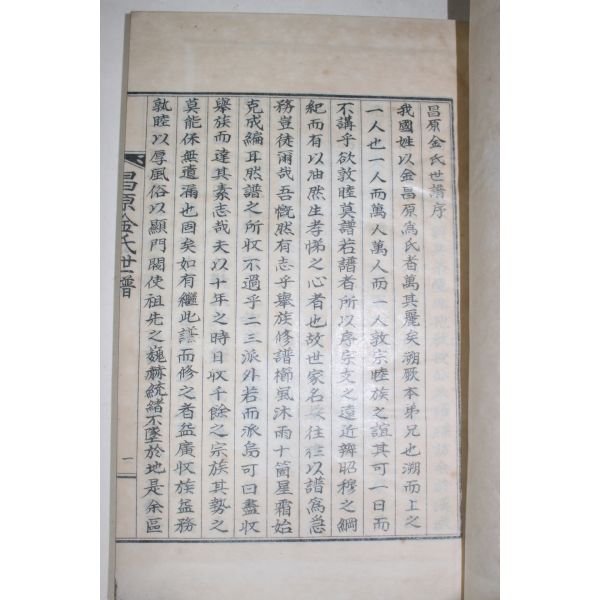 昌原金氏世譜序
我國姓以金昌原爲氏者萬其麗矣溯厥本弟兄也溯而上之
一人也一人而萬人萬人而一人敦宗睦族之誼其可一日而
不講乎欲敦睦莫譜若譜者所以序宗支之遠近辨昭穆之綱
紀而有以油然生孝悌之心者也故世家名娄往往以譜爲急
務豈徒爾哉吾慨然有志乎舉族修譜櫛風沐雨十箇星霜始
克成編耳然譜之所收不過乎二三派外若而派烏可曰盡收
舉族而達其素志哉夫以十年之時日收千餘之宗族其勢之
莫能保無遺漏也固矣如有繼此譜而修之者益廣收族益務
孰睦以厚風俗以顯門閥使祖先之巍赫統緖不墜於地是余區
昌原金氏世譜
一